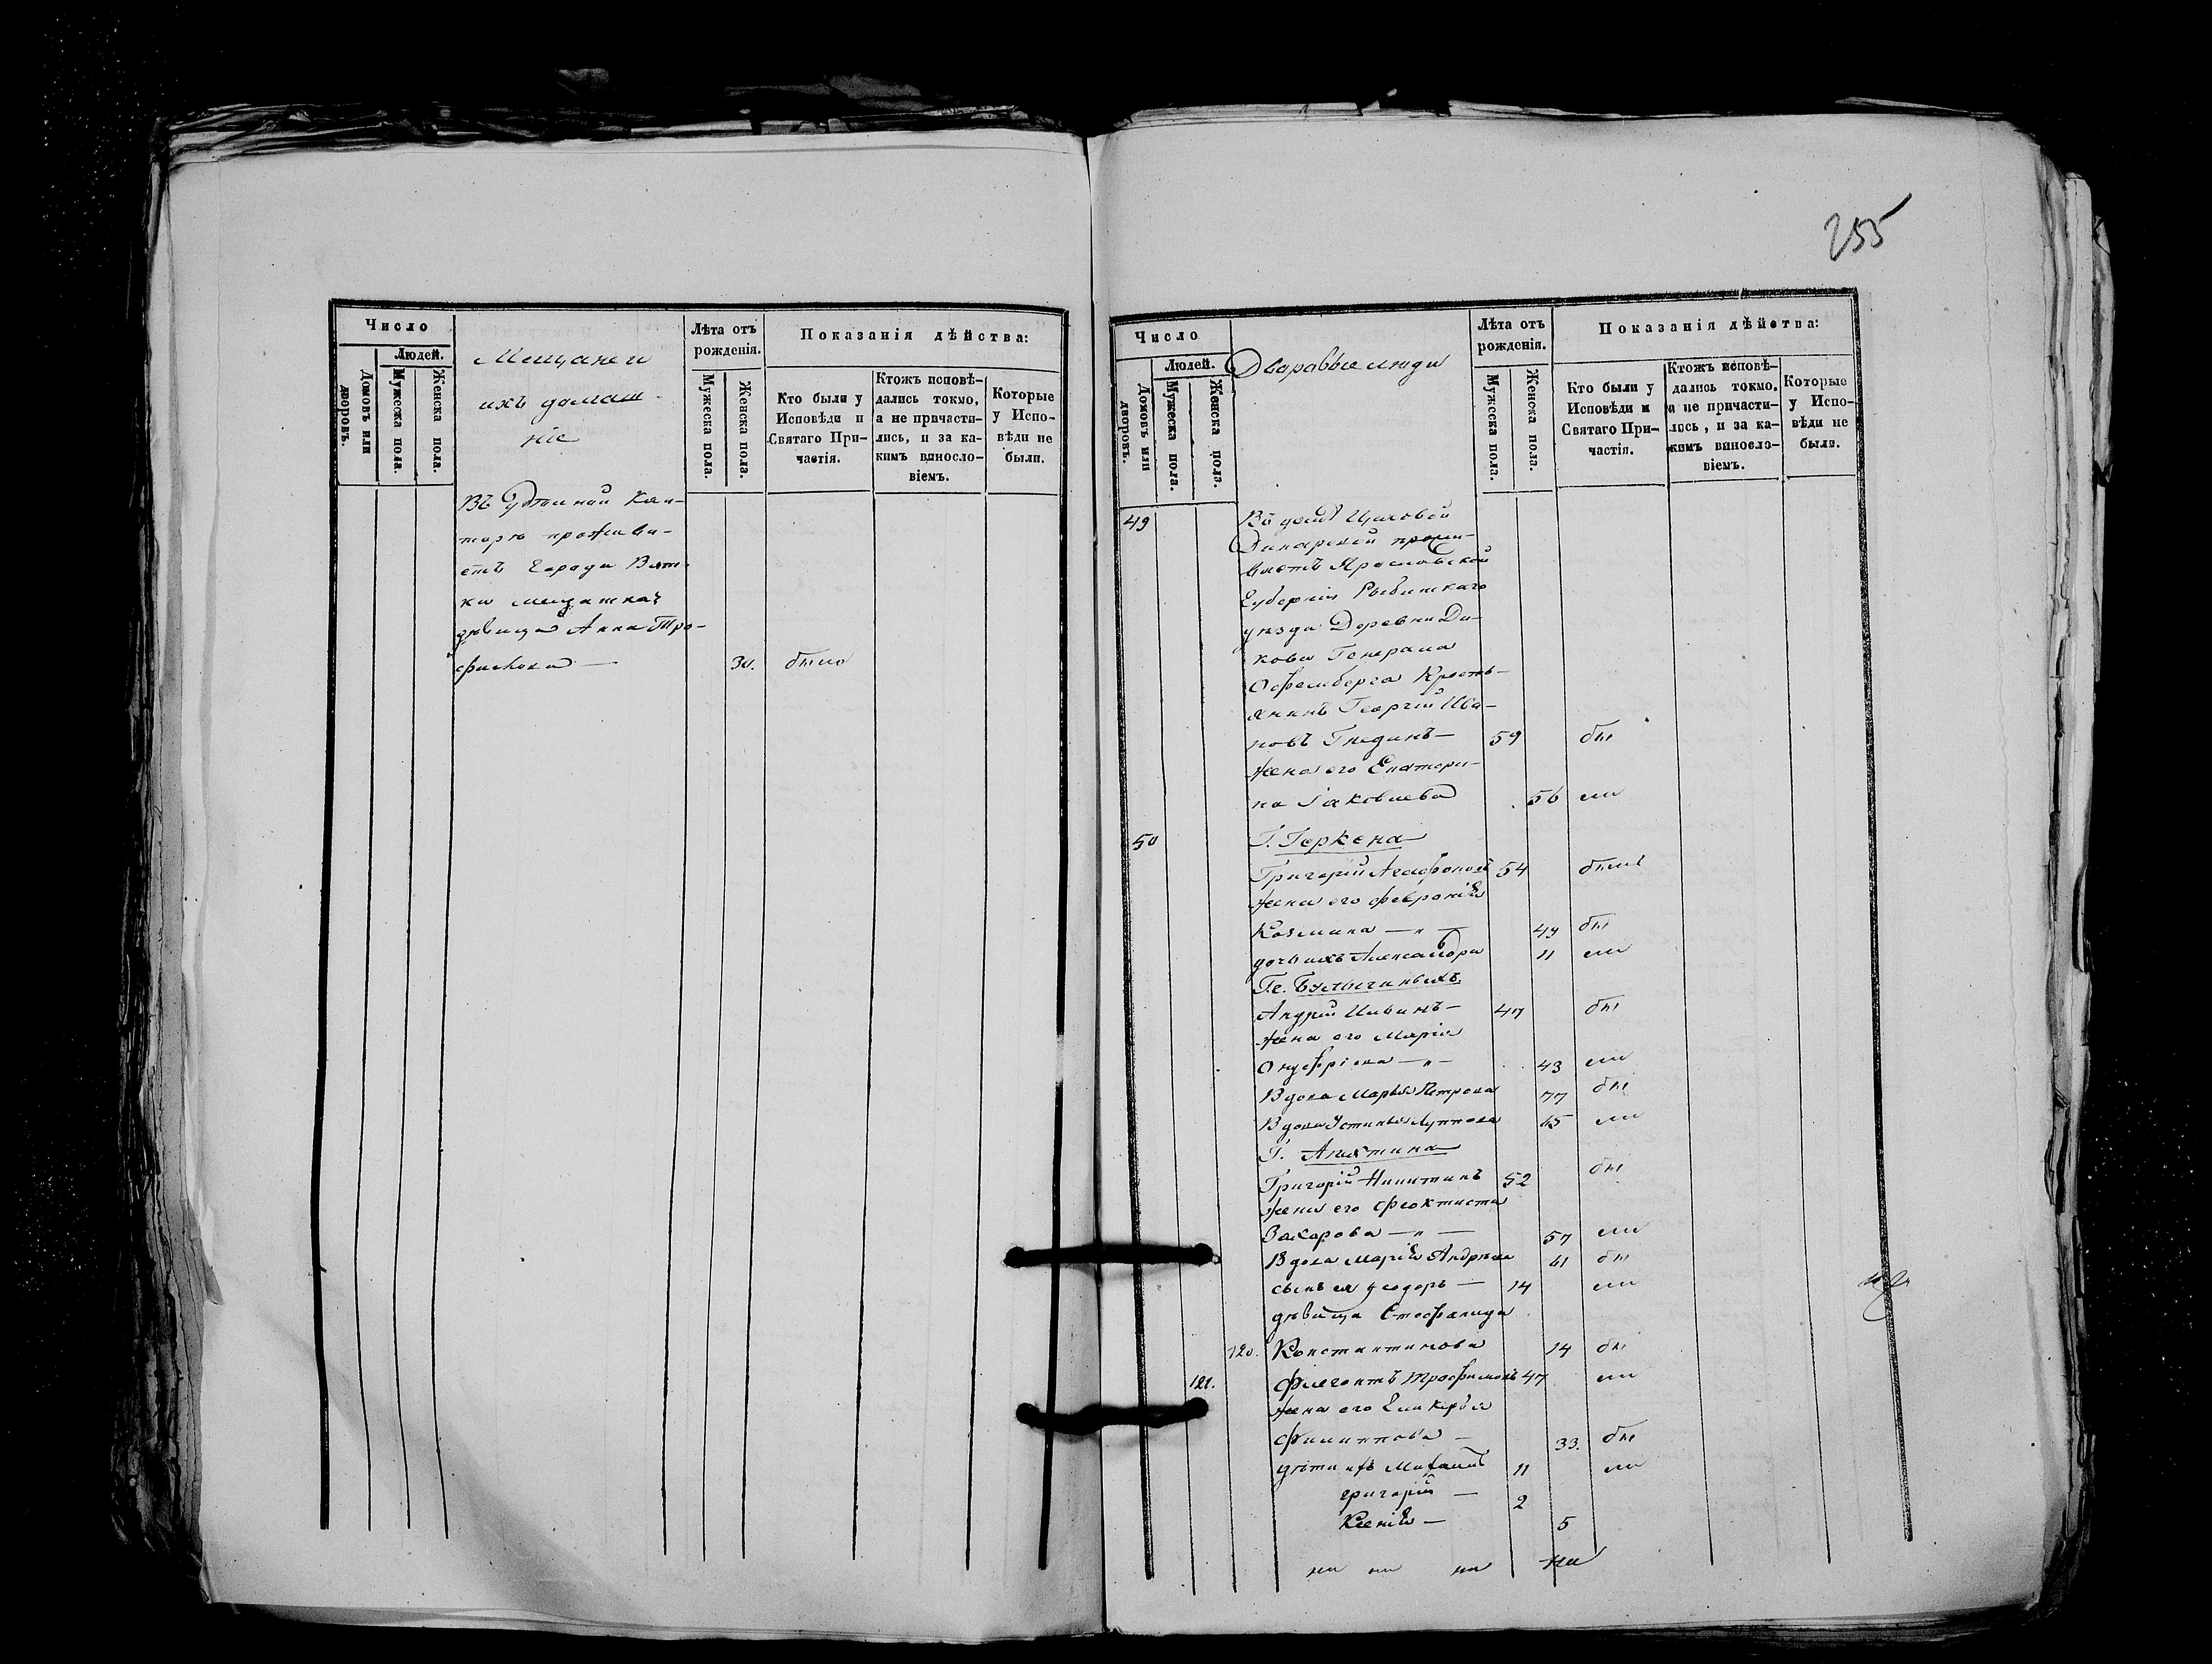 255
Число
Людей.
Домовъ или дворовъ.
Мужеска пола.
Женска пола.
Мещане и
ихъ домаш-
ніе
Лѣта отъ рожденія.
Мужеска пола.
Женска пола.
Показанія дѣйства:
Кто были у Исповѣди и Святаго Причастія.
Ктожъ исповѣдались токмо, а не причастились, и за какимъ винословіемъ.
Которые у Исповѣди не были.
Въ Удѣльной Кан-
торѣ прожива-
етъ города Вят-
ки мещанка
дѣвица Анна Тро-
фимова — 30. была
Число
Людей.
Домовъ или дворовъ.
Мужеска пола.
Женска пола.
Дворовые люди
Лѣта отъ рожденія.
Мужеска пола.
Женска пола.
Показанія дѣйства:
Кто были у Исповѣди и Святаго Причастія.
Ктожъ исповѣдались токмо, а не причастились, и за какимъ винословіемъ.
Которые у Исповѣди не были.
49 Въ домѣ
Ярославской
Губерніи Рыбинскаго
уѣзда Деревни Ди-
кова Генерала
Кресть-
янинъ Георгій Ива-
новъ Гнединъ — 59 бы
жена его Екатери-
на Яковлева 56 ли
50 Г. Геркена
Григорій Агафоновъ 54 были
жена его Февронія
Козмина — " — 49 бы
дочь ихъ Александра 11 ли
Гг. Булыгиныхъ
Андрей Ивинъ — 47 бы
жена его Марія
Онуфріева — " — 43 ли
Вдова Марья Петрова 77 бы
Вдова Устинья Луппова 65 ли
Г. Апехтина
Григорій Никитинъ 52 бы
жена его Феоктиста
Захарова — " — 57 ли
Вдова Марія Андреева 61 бы
сынъ ея Ѳеодоръ — 14 ли
дѣвица Стефанида
120. Константинова 14 бы
121. Флегонтъ Трофимовъ 47 ли
жена его Гликерья
Филиппова — 33. бы
дѣти ихъ Михаилъ 11 ли
Григорій — 2
Ксенія — 5